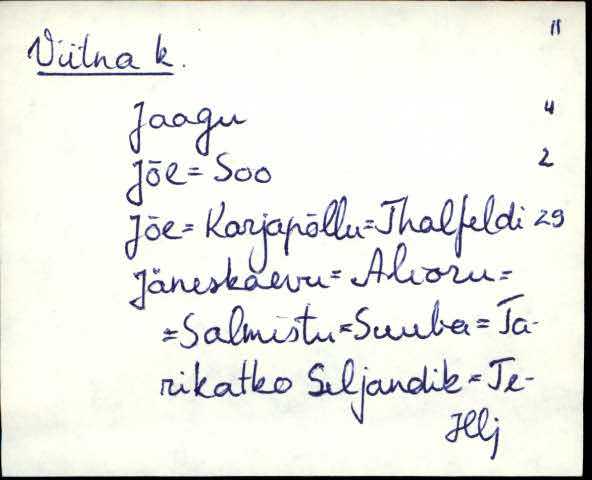 11
Viitna k.
Jaagu 4
Jõe = Soo 2
Jõe = Karjapõllu = Thalfeldi 29
Jäneskaevu =
= Salmistu = Suuba = Ta-
rikatko Seljandik = Te-
Hlj